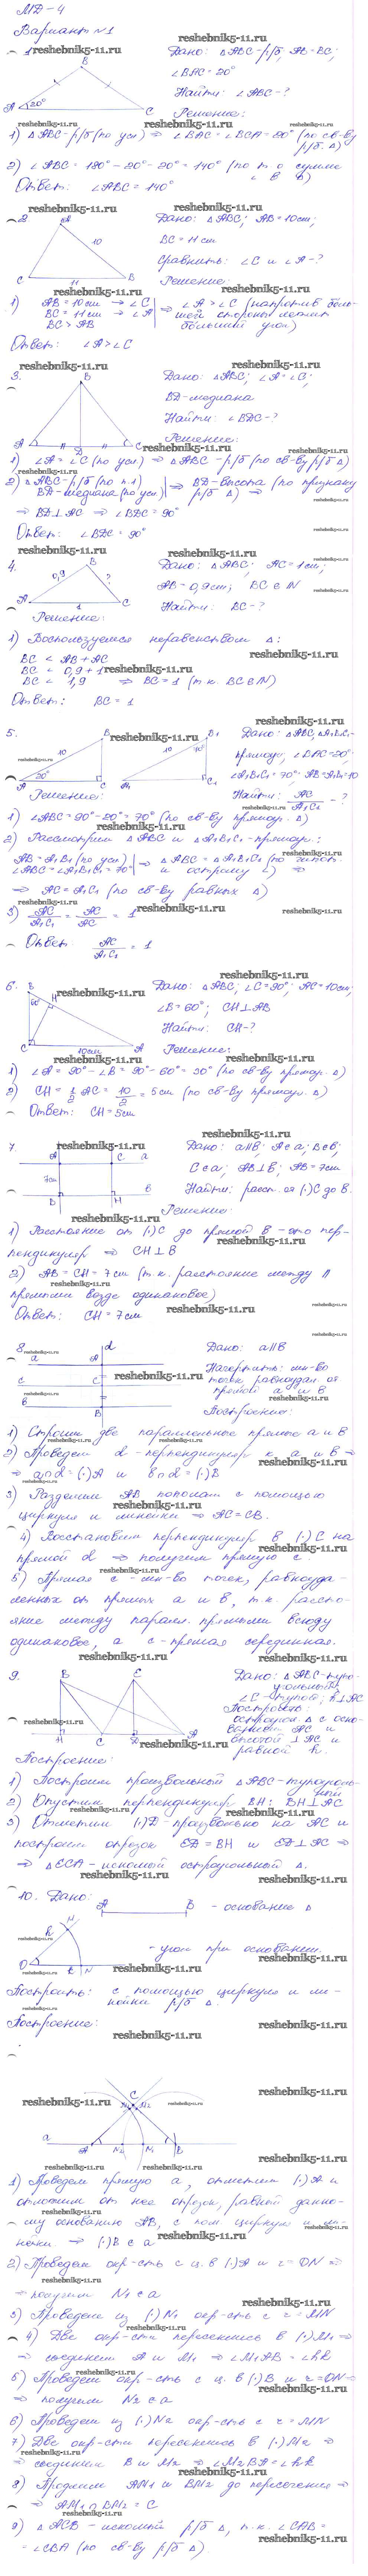 МД-4
Вариант №1
1.
Дано: △ABC-р/б, AB=BC;
∠BAC=20°
Найти: ∠ABC-?
Решение:
B
A 20° C
1) △ABC-р/б(по усл) ⇒ ∠BAC=∠BCA=20° (по св-ву р/б △)
2) ∠ABC = 180°-20°-20°=140° (по т о сумме ∠ в △)
Ответ: ∠ABC=140°
2.
Дано: △ABC; AB=10см;
BC=11см
Сравнить: ∠C и ∠A-?
Решение:
A
10
C 11 B
1) AB=10см → ∠C
BC=11см → ∠A
BC>AB
⇒ ∠A>∠C (напротив большей стороны лежит
больший угол)
Ответ: ∠A>∠C
3.
Дано: △ABC; ∠A=∠C;
BD-медиана
Найти: ∠BDC-?
Решение:
B
A D C
1) ∠A=∠C(по усл) ⇒ △ABC-р/б(по св-ву р/б △)
2) △ABC-р/б(по п.1)
BD-медиана(по усл)
⇒ BD-высота (по признаку
р/б △) ⇒
⇒ BD⊥AC ⇒ ∠BDC=90°
Ответ: ∠BDC=90°
4.
Дано: △ABC; AC=1см;
AB=0,9см; BC∈N
Найти: BC-?
B
0,9 ?
A 1 C
Решение:
1) Воспользуемся неравенством △:
BC < AB+AC
BC < 0,9+1
BC < 1,9 ⇒ BC=1 (т.к. BC∈N)
Ответ: BC=1
5.
Дано: △ABC, △A1B1C1-
прямоуг, ∠BAC=20°,
∠A1B1C1=70° AB=A1B1=10
Найти: AC/A1C1 -?
B B1
10 10 70°
A 20° C A1 C1
Решение:
1) ∠ABC=90°-20°=70° (по св-ву прямоуг. △)
2) Рассмотрим △ABC и △A1B1C1-прямоуг.:
AB=A1B1(по усл)
∠ABC=∠A1B1C1=70°
⇒ △ABC=△A1B1C1 (по гипот.
и острому ∠) ⇒
⇒ AC=A1C1 (по св-ву равных △)
3) AC/A1C1 = AC/AC = 1
Ответ. AC/A1C1 = 1
6.
Дано: △ABC; ∠C=90°; AC=10см;
∠B=60°; CH⊥AB
Найти: CH-?
Решение:
B
60° H
C 10см A
1) ∠A=90°-∠B=90°-60°=30° (по св-ву прямоуг. △)
2) CH=1/2 AC=10/2=5см (по св-ву прямоуг. △)
Ответ: CH=5см
7.
Дано: a∥b; A∈a; B∈b;
C∈a; AB⊥b; AB=7см
Найти: расст. от (·)C до b.
Решение:
A C a
7см
B H b
1) Расстояние от (·)C до прямой b-это пер-
пендикуляр ⇒ CH⊥b
2) AB=CH=7см (т.к. расстояние между ∥
прямыми везде одинаковое)
Ответ: CH=7см
8.
Дано: a∥b
Начертить: мн-во
точек, равноудал от
прямой a и b
Построение:
d
a A
c C
b B
1) Строим две параллельные прямые a и b
2) Проведем d-перпендикуляр к a и b ⇒
⇒ a∩d=(·)A и b∩d=(·)B
3) Разделим AB пополам с помощью
циркуля и линейки ⇒ AC=CB.
4) Восстановим перпендикуляр в (·)C на
прямой d ⇒ получим прямую c
5) Прямая c-мн-во точек, равноуда-
ленных от прямых a и b, т.к. рассто-
яние между паралл. прямыми всюду
одинаковое, а c-прямая серединная.
9.
Дано: △ABC-тупо-
угольный
∠C-тупой; h⊥AC
Построить:
остроугол. △ с осно-
ванием AC и
высотой ⊥AC и
равной h.
B E
H C D A
Построение:
1) Построим произвольный △ABC-тупоуголь-
ный
2) Опустим перпендикуляр BH: BH⊥AC
3) Отметим (·)D-произвольно на AC и
построим отрезок ED=BH и ED⊥AC ⇒
⇒ △ECA-искомый остроугольный △.
10. Дано:
A B - основание △
h M
O k N
- угол при основании.
Построить: с помощью циркуля и ли-
нейки р/б △.
Построение:
C
M1 M2
a A N2 N1 B
1) Проведем прямую a, отметим (·)A и
отложим от нее отрезок, равный данно-
му основанию AB, с пом циркуля и ли-
нейки ⇒ (·)B∈a
2) Проведем окр-сть с ц. в (·)A и r=ON ⇒
⇒ получим N1∈a
3) Проведем из (·)N1 окр-сть с r=MN
4) Две окр-сти пересеклись в (·)M1 ⇒
⇒ соединим A и M1 ⇒ ∠M1AB=∠hk
5) Проведем окр-сть с ц. в (·)B и r=ON ⇒
⇒ получим N2∈a
6) Проведем из (·)N2 окр-сть с r=MN
7) Две окр-сти пересеклись в (·)M2 ⇒
⇒ соединим B и M2 ⇒ ∠M2BA=∠hk
8) Продлим AM1 и BM2 до пересечения ⇒
⇒ AM1∩BM2=C
9) △ACB-искомый р/б △, т.к. ∠CAB=
=∠CBA (по св-ву р/б △).
reshebnik5-11.ru